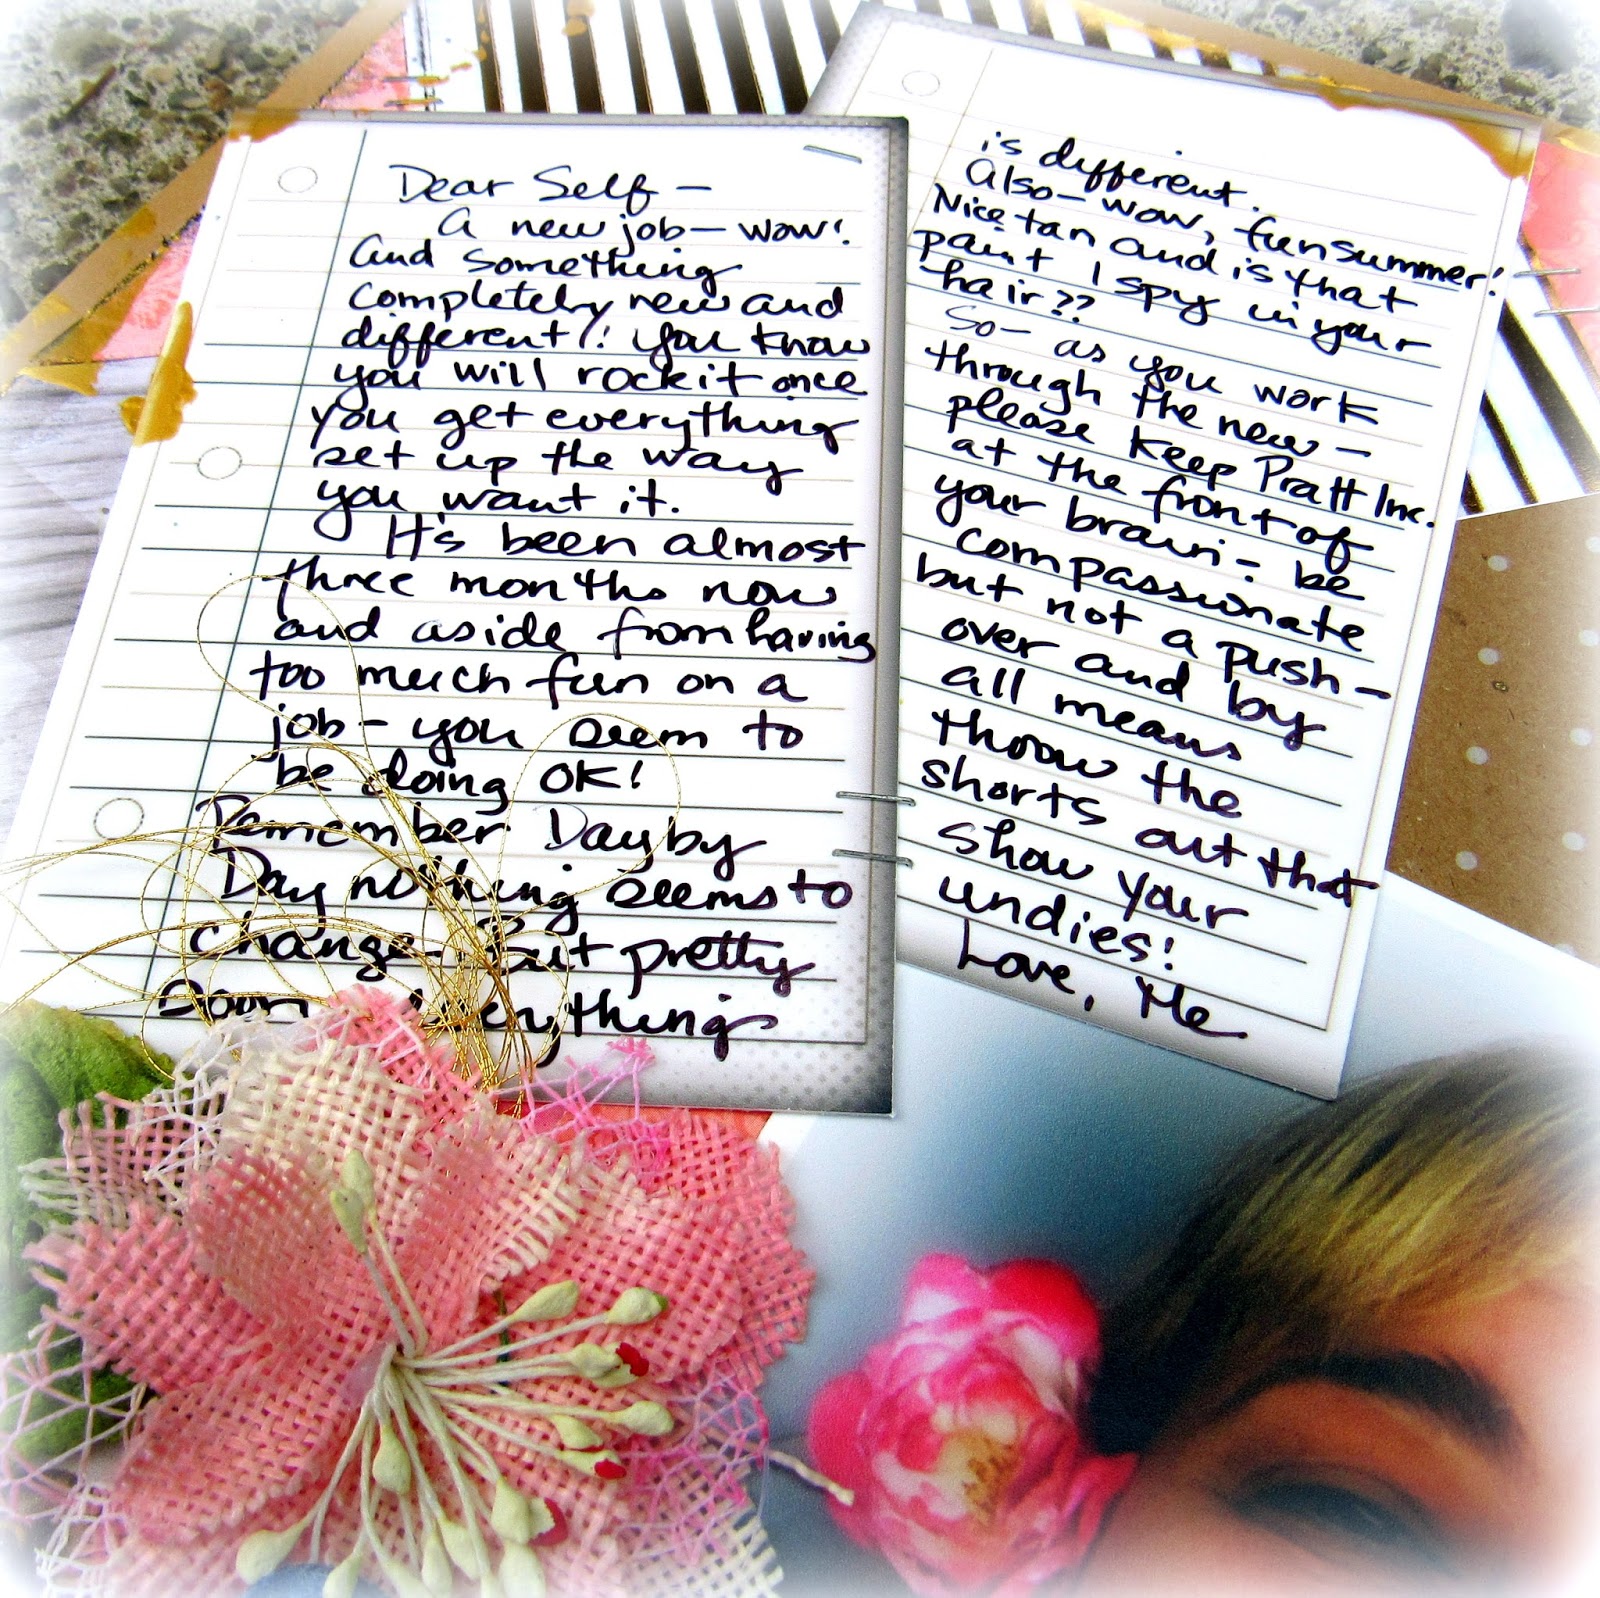 Dear Self –
A new job – wow!
and something
completely new and
different!! You know
you will rock it once
you get everything
set up the way
you want it.
It's been almost
three months now
and aside from having
too much fun on a
job – you seem to
be doing OK!
Remember Day by
Day nothing seems to
change – but pretty
soon everything
is different.
Also – wow, fun summer!
Nice tan and is that
paint I spy in your
hair??
So – as you work
through the new –
please keep Pratt Inc.
at the front of
your brain – be
compassionate
but not a push –
over and by
all means
throw the
shorts out that
show your
undies!
Love, Me